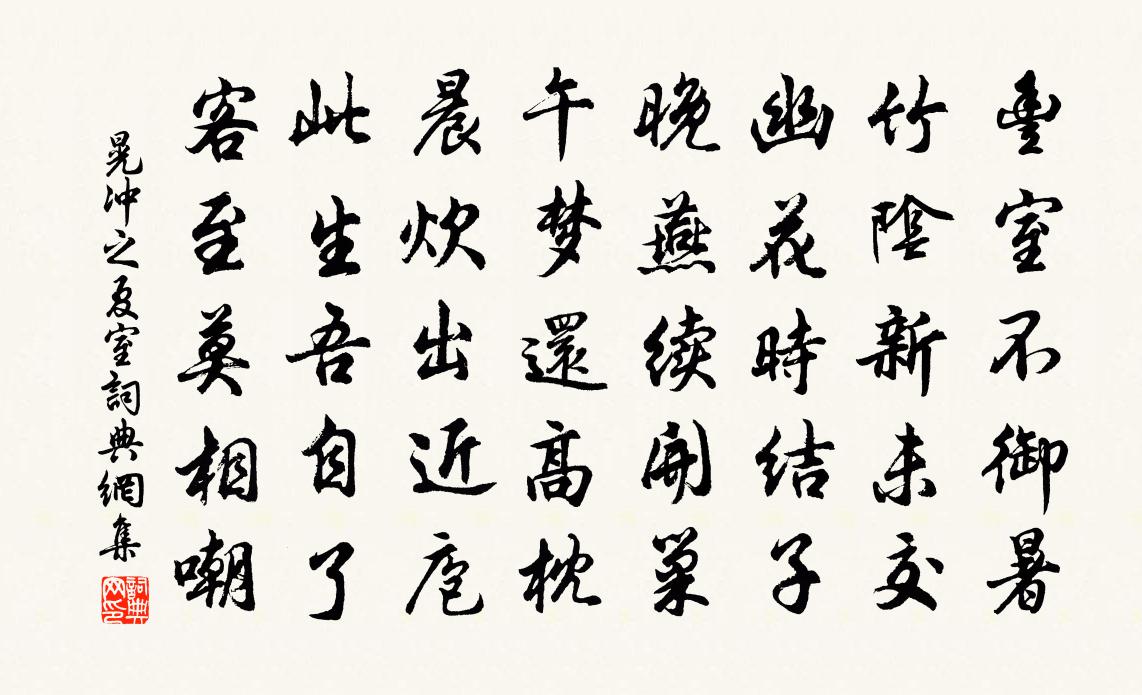 亹室不御暑
竹陰新未交
幽花時結子
晚燕续開巢
午梦還高枕
晨炊出近庖
此生吾自了
客至莫相嘲
晁冲之夏室詞典網集
詞典网印